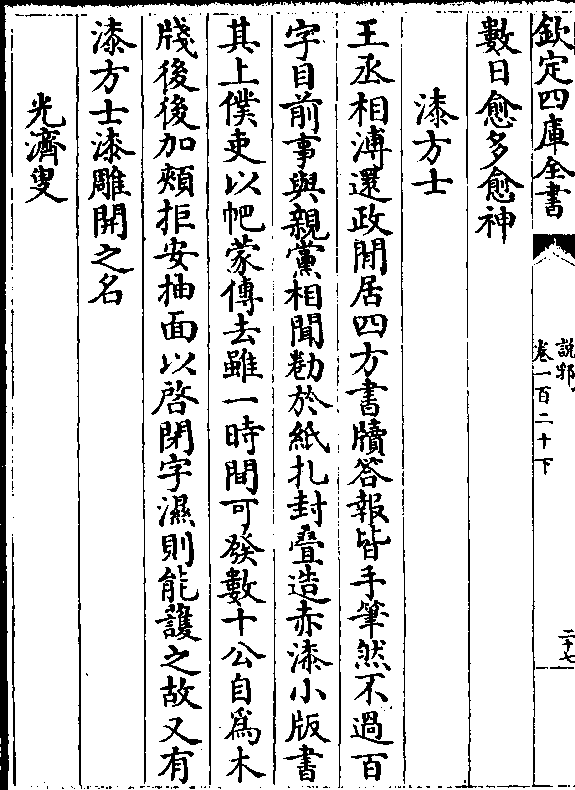 欽定四庫全書
說郛
卷一百二十下
二十七
數日愈多愈神
漆方士
王丞相溥還政閒居四方書牘答報皆手筆然不過百
字目前事與親黨相聞勸於紙扎封疊造赤漆小版書
其上僕吏以帊蒙傳去雖一時間可發數十公自爲木
牋後後加頰拒安抽面以啓閉字濕則能護之故又有
漆方士漆雕開之名
光濟叟